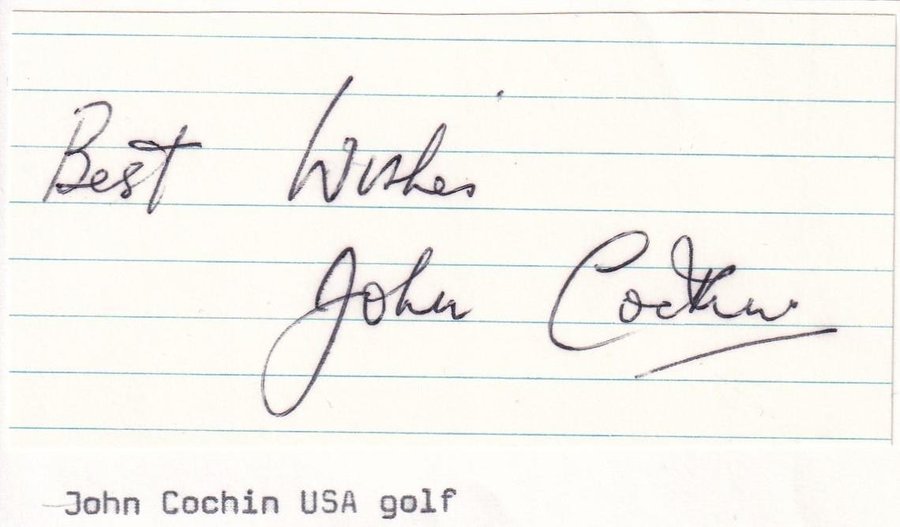 Best Wishes
John Cochin
John Cochin USA golf